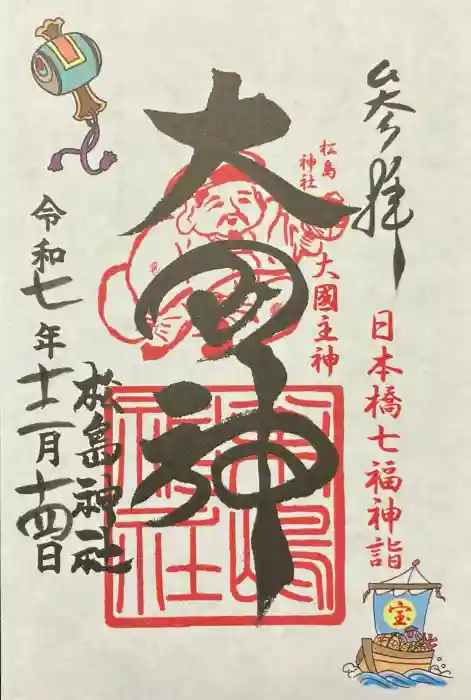 参拝
日本橋七福神詣
宝
松島
神社
大國主神
大国神
松島神社
松島神社
令和七年十二月十四日